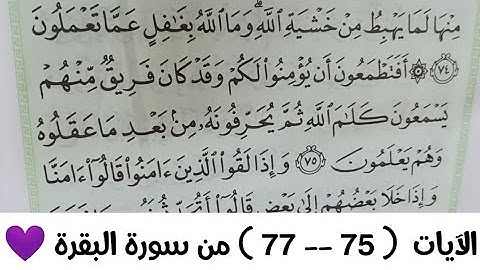 مِنْهَا لَمَا يَهْبِطُ مِنْ خَشْيَةِ ٱللَّهِۗ وَمَا ٱللَّهُ بِغَٰفِلٍ عَمَّا تَعْمَلُونَ
٧٤ ۞ أَفَتَطْمَعُونَ أَن يُؤْمِنُوا۟ لَكُمْ وَقَدْ كَانَ فَرِيقٌ مِّنْهُمْ
يَسْمَعُونَ كَلَٰمَ ٱللَّهِ ثُمَّ يُحَرِّفُونَهُۥ مِنۢ بَعْدِ مَا عَقَلُوهُ
وَهُمْ يَعْلَمُونَ ٧٥ وَإِذَا لَقُوا۟ ٱلَّذِينَ ءَامَنُوا۟ قَالُوٓا۟ ءَامَنَّا
وَإِذَا خَلَا بَعْضُهُمْ إِلَىٰ بَعْضٍ قَالُوٓا۟
الآيات ( 75 -- 77 ) من سورة البقرة 💜